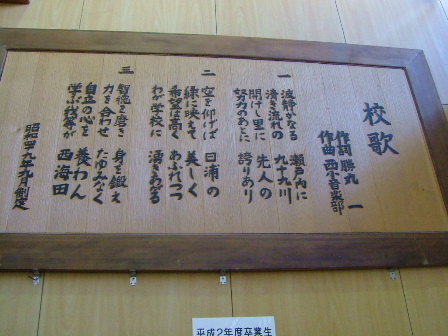 校歌
作詞 勝丸 一
作曲 西小音楽部
一 波静かなる 瀬戸内に
清き流れの 九十九川
開けし里に 先人の
努力のあとに 誇りあり
二 空を仰げば 日浦の
緑に映えて 美しく
希望は高く あふれつつ
わが学校に 湧きあがる
三 智徳を磨き 身を鍛え
力を合わせ たゆみなく
自立の心を 養わん
学ぶ我等が 西海田
昭和四十九年九月制定
平成2年度卒業生